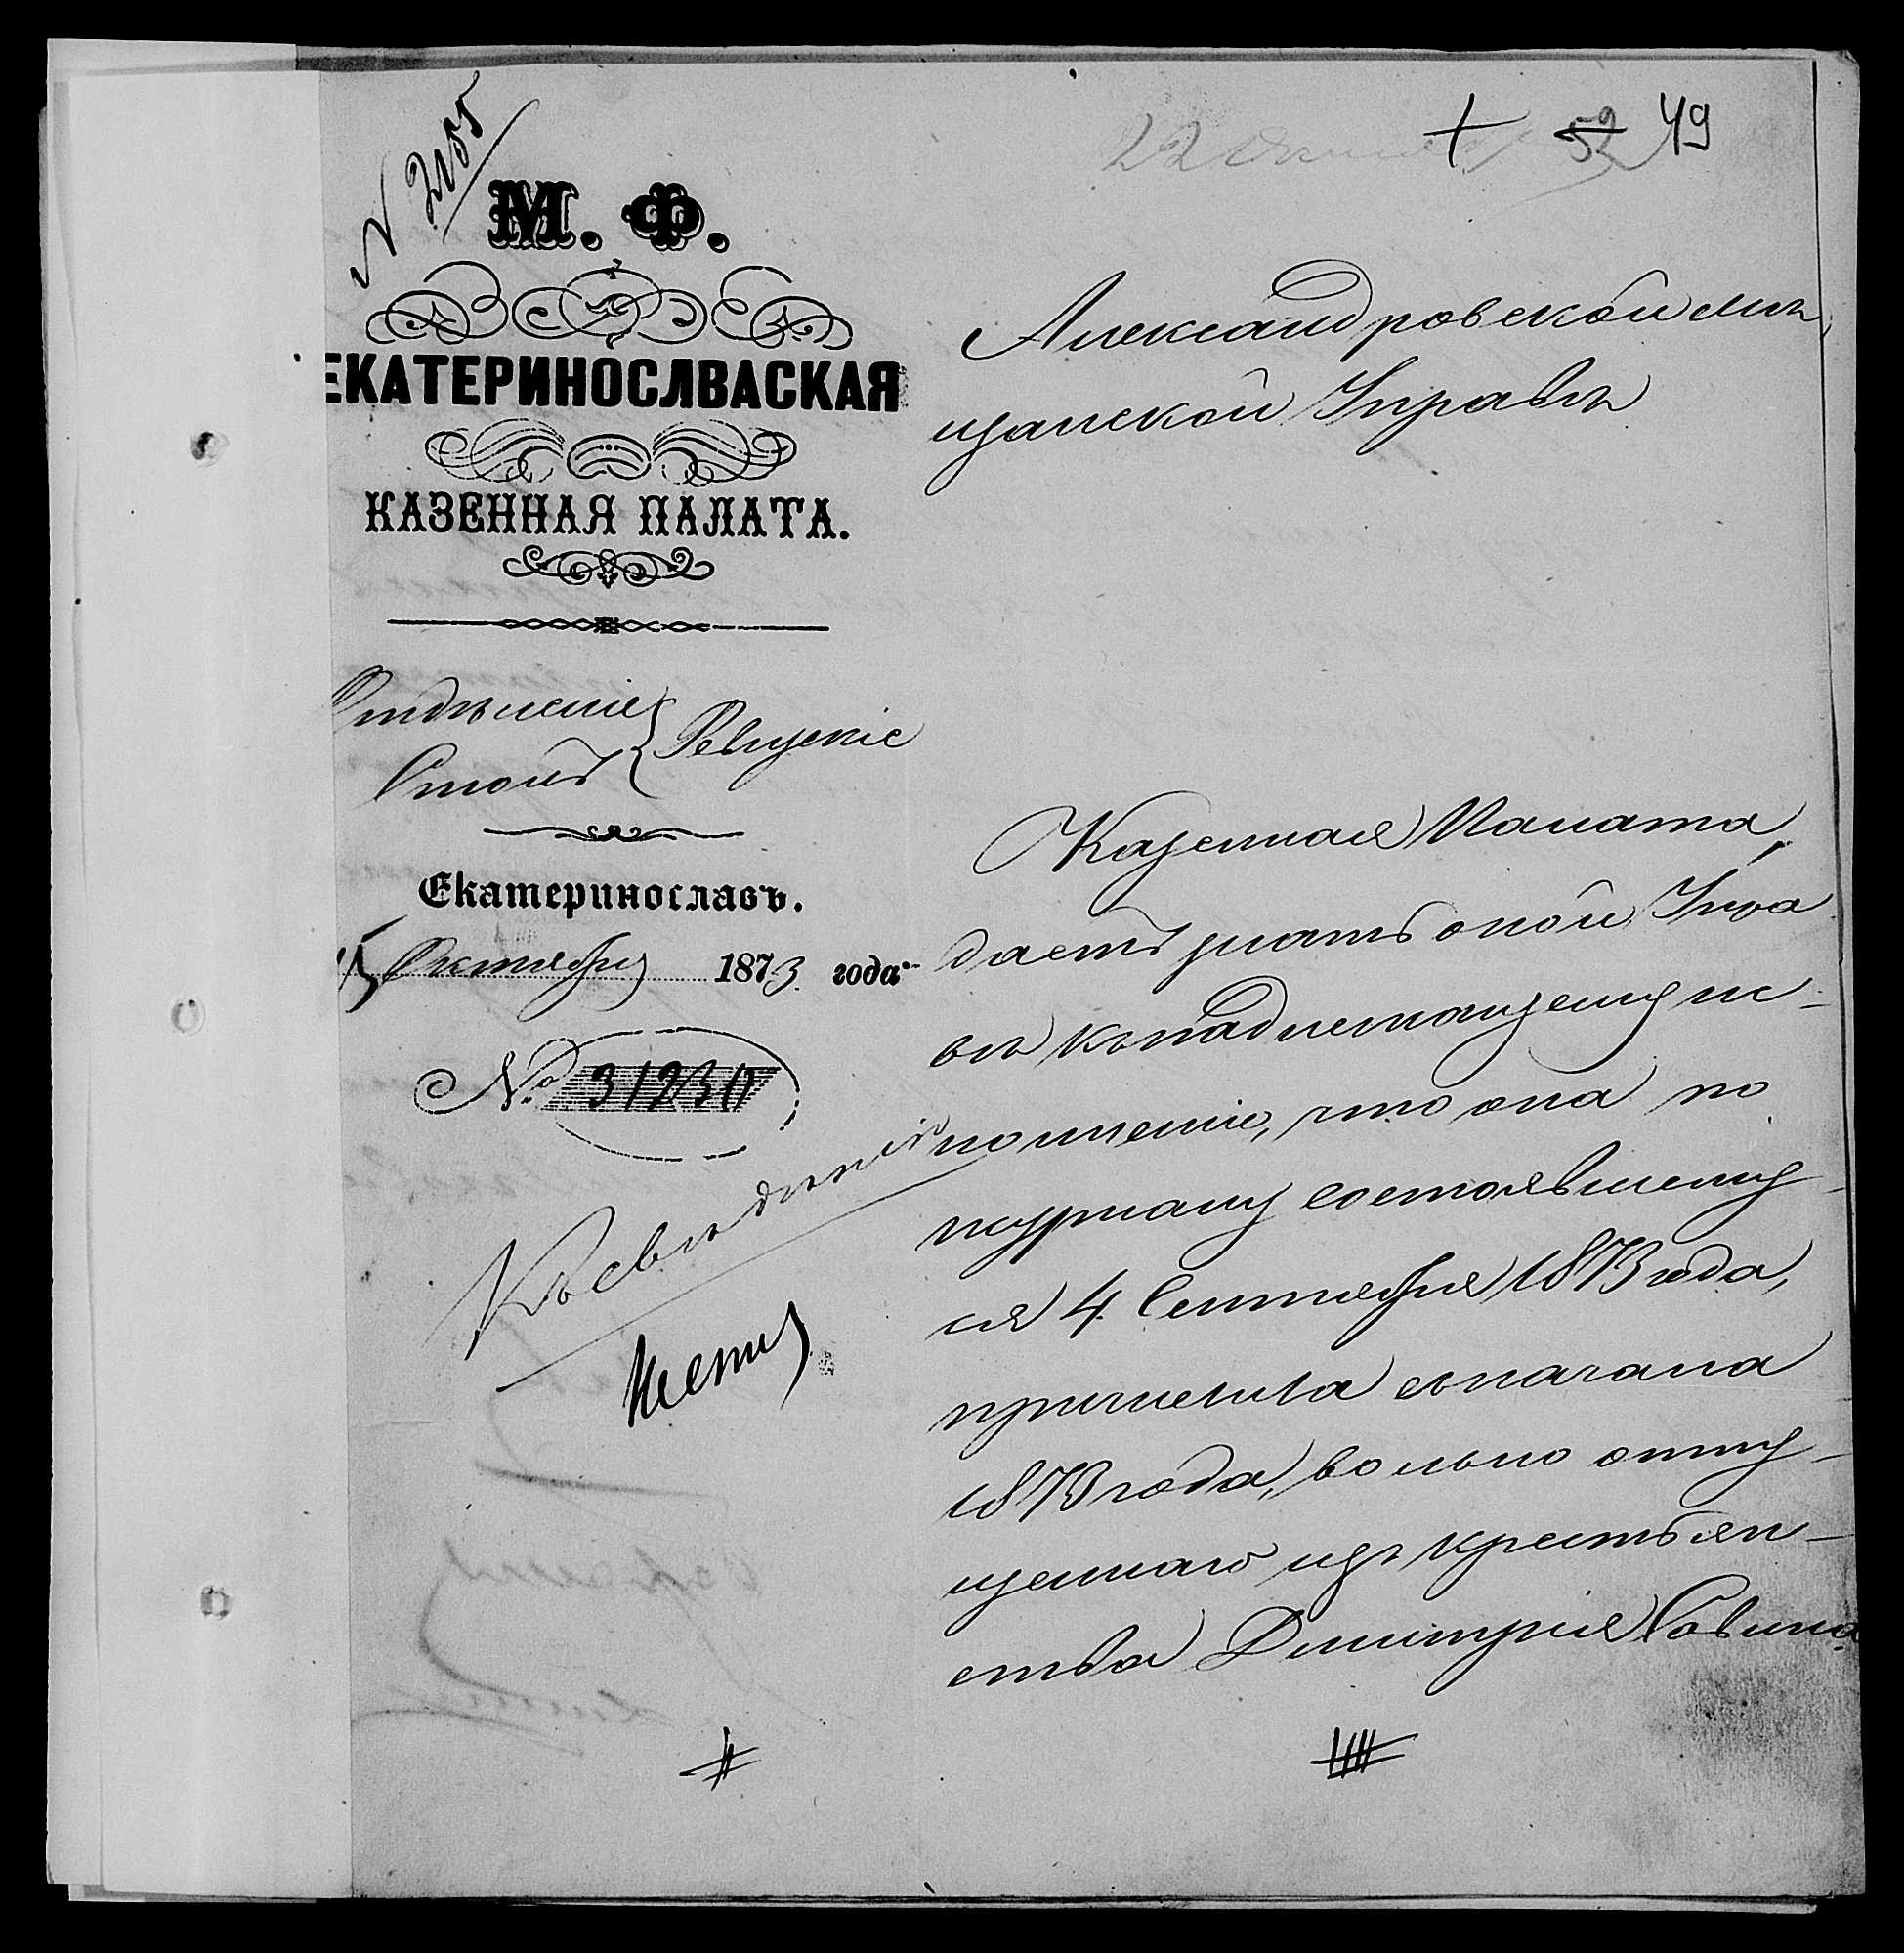 N 2155
22 Октября
52 49
М. Ф.
ЕКАТЕРИНОСЛВАСКАЯ
КАЗЕННАЯ ПАЛАТА.
Отдѣленіе
Столъ
Ревизскіе
Екатеринославъ.
15 Октября 1873 года
№ 31230
Къ свѣдѣнію
Александровской мѣ-
щанской Управѣ
Казенная Палата,
даетъ знать оной Упра
вѣ къ надлежащему ис-
полненію, что она по
журналу состоявшему-
ся 4 Сентября 1873 года,
причислила съ начала
1873 года, вольно отпу-
щеннаго изъ крестьян-
ства Дмитрія Савина